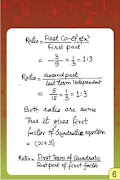 Ratio = First Co-eff of x²
First part
= 3/9 = 1/3 = 1:3
Ratio = second part
last term Independent
= 5/15 = 1/3 = 1:3
Both ratio are same
Thus it gives first
factor of Quadratic equation
= (x+3)
Ratio = First Term of Quadratic
First part of first factor
6